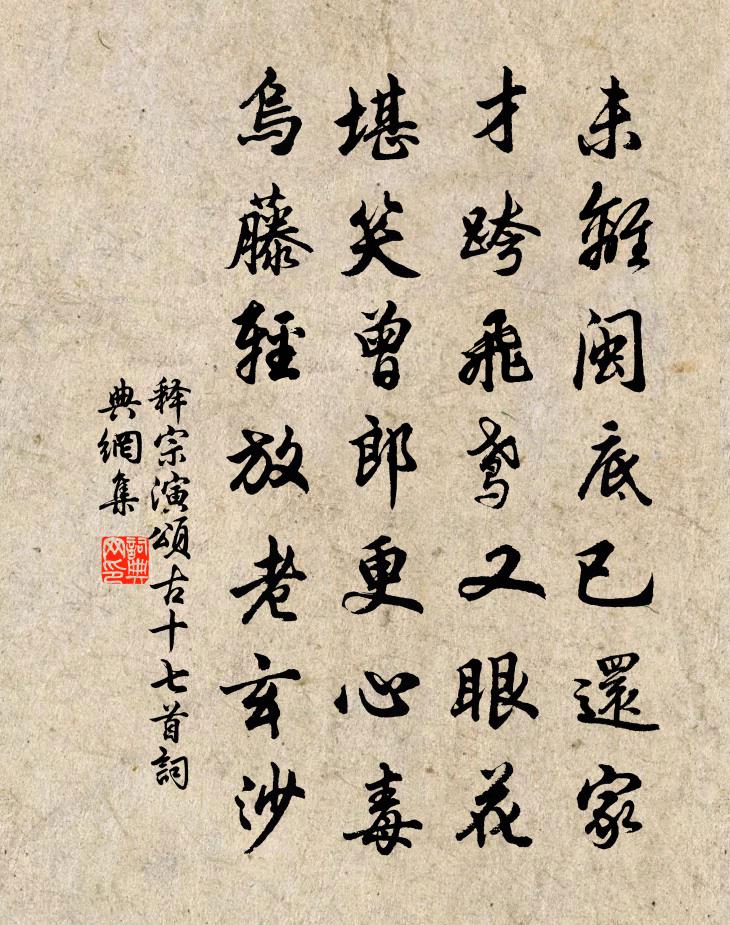 未離閩底已還家
才跨飛鳶又眼花
堪笑曾郎更心毒
烏藤輕放老玄沙
释宗演頌古十七首詞
典網集
詞典
网印